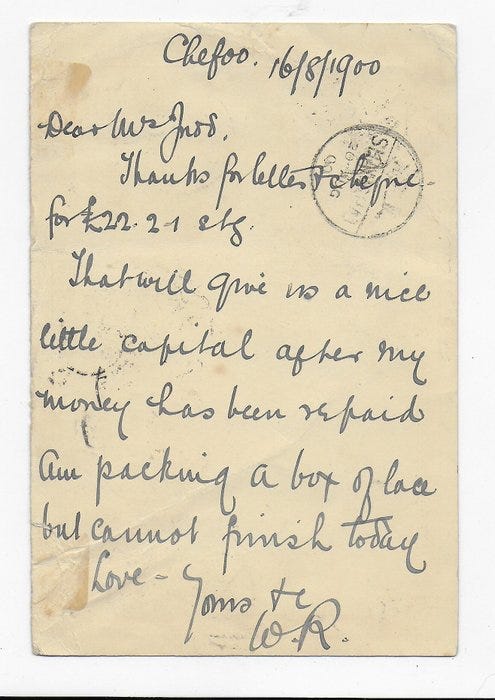 Chefoo. 16/8/1900
Dear Mrs
Thanks for letter & cheque
for £22. 2-1 stg.
That will give us a nice
little capital after my
money has been repaid
Am packing a box of lace
but cannot finish today
Love - Yours &c
W.R.